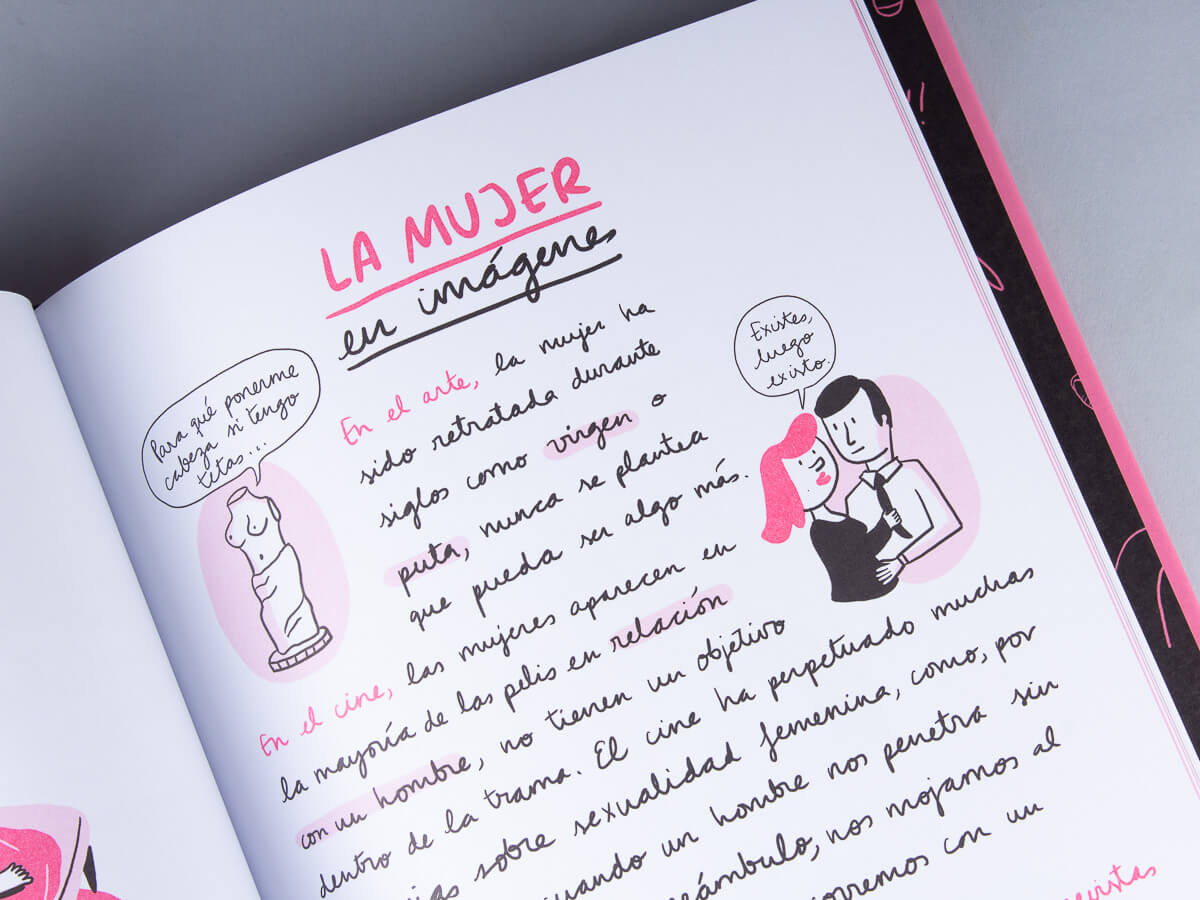 LA MUJER
en imágenes
Para qué ponerme
cabeza si tengo
tetas...
Existes,
luego
existo.
En el arte, la mujer ha
sido retratada durante
siglos como virgen o
puta, nunca se plantea
que pueda ser algo más.
En el cine, las mujeres aparecen en
la mayoría de las pelis en relación
con un hombre, no tienen un objetivo
dentro de la trama. El cine ha perpetuado muchas
sobre sexualidad femenina, como, por
cuando un hombre nos penetra sin
nos mojamos al
con un